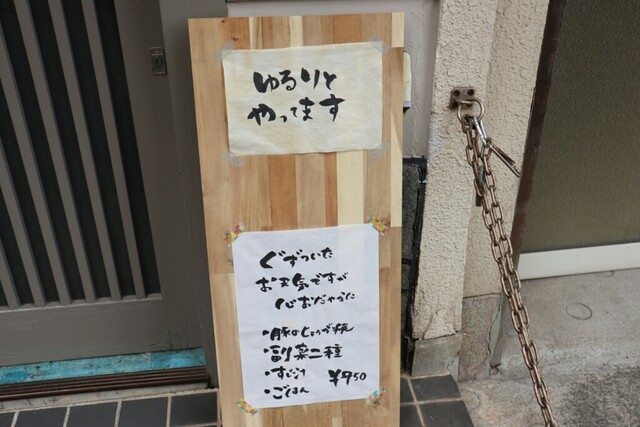 ゆるりと
やってます
ぐずついた
お天気ですが
心おだやかに
・豚のしょうが焼
・副菜二種
・すじ汁
・ごはん ¥950